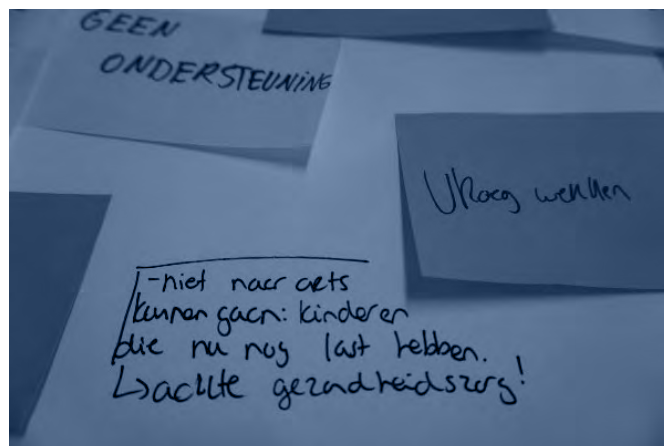 GEEN
ONDERSTEUNING
Vroeg werken
-niet naar arts
kunnen gaan: kinderen
die nu nog last hebben.
↳ acute gezondheidszorg!